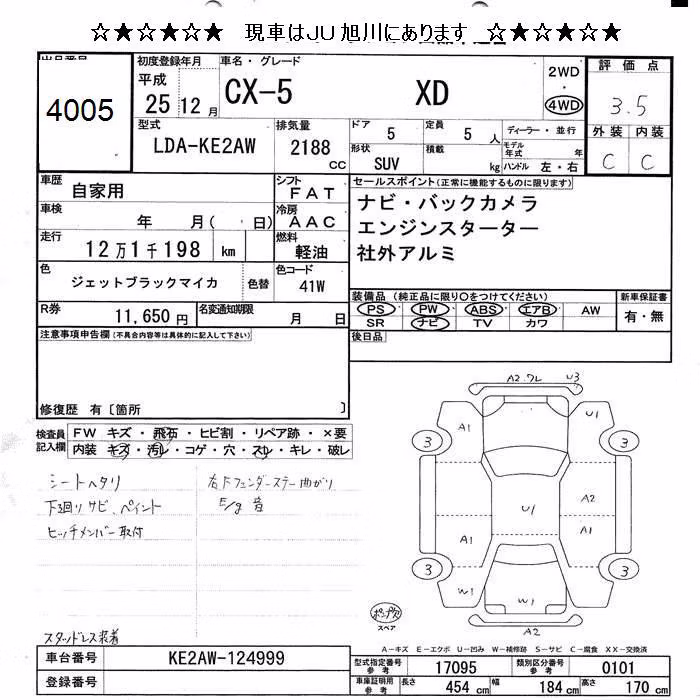 ☆★☆★☆★ 現車はJU旭川にあります ☆★☆★☆★
4005
初度登録年月 平成 25 12 月
車名・グレード CX-5 XD
2WD ・ 4WD
評価点 3.5
外装 内装
C C
型式 LDA-KE2AW
排気量 2188 CC
ドア 5 定員 5 人
形状 SUV 積載 kg
ディーラー・並行
モデル年式 年
ハンドル 左・右
車歴 自家用
シフト FAT
車検 年 月( 日)
冷房 AAC
走行 12万1千198 km
燃料 軽油
色 ジェットブラックマイカ 色替
色コード 41W
R券 11,650円
名変通知期限 月 日
セールスポイント(正常に機能するものに限ります)
ナビ・バックカメラ
エンジンスターター
社外アルミ
装備品 (純正品に限り○をつけてください)
PS PW ABS エアB AW
SR ナビ TV カワ
新車保証書
有・無
後日品
注意事項申告欄(不具合内容等は具体的に記入して下さい)
修復歴 有〔箇所 〕
検査員記入欄
FW キズ・飛石・ヒビ割・リペア跡・×要
内装 キズ・汚レ・コゲ・穴・スレ・キレ・破レ
シートヘタリ
下廻りサビ、ペイント
ヒッチメンバー取付
右Fフェンダーステー曲がり
E/g 音
スタッドレス装着
A2 ワレ U3
A1 U1
3 3
A2
U1
A1 A1
3 3
W1 W1
A2
スペア
A-キズ E-エクボ U-凹み W-補修跡 S-サビ C-腐食 XX-交換済
車台番号 KE2AW-124999
登録番号
型式指定番号 参考 17095
類別区分番号 参考 0101
車庫証明用 参考 長さ 454 cm 幅 184 cm 高さ 170 cm